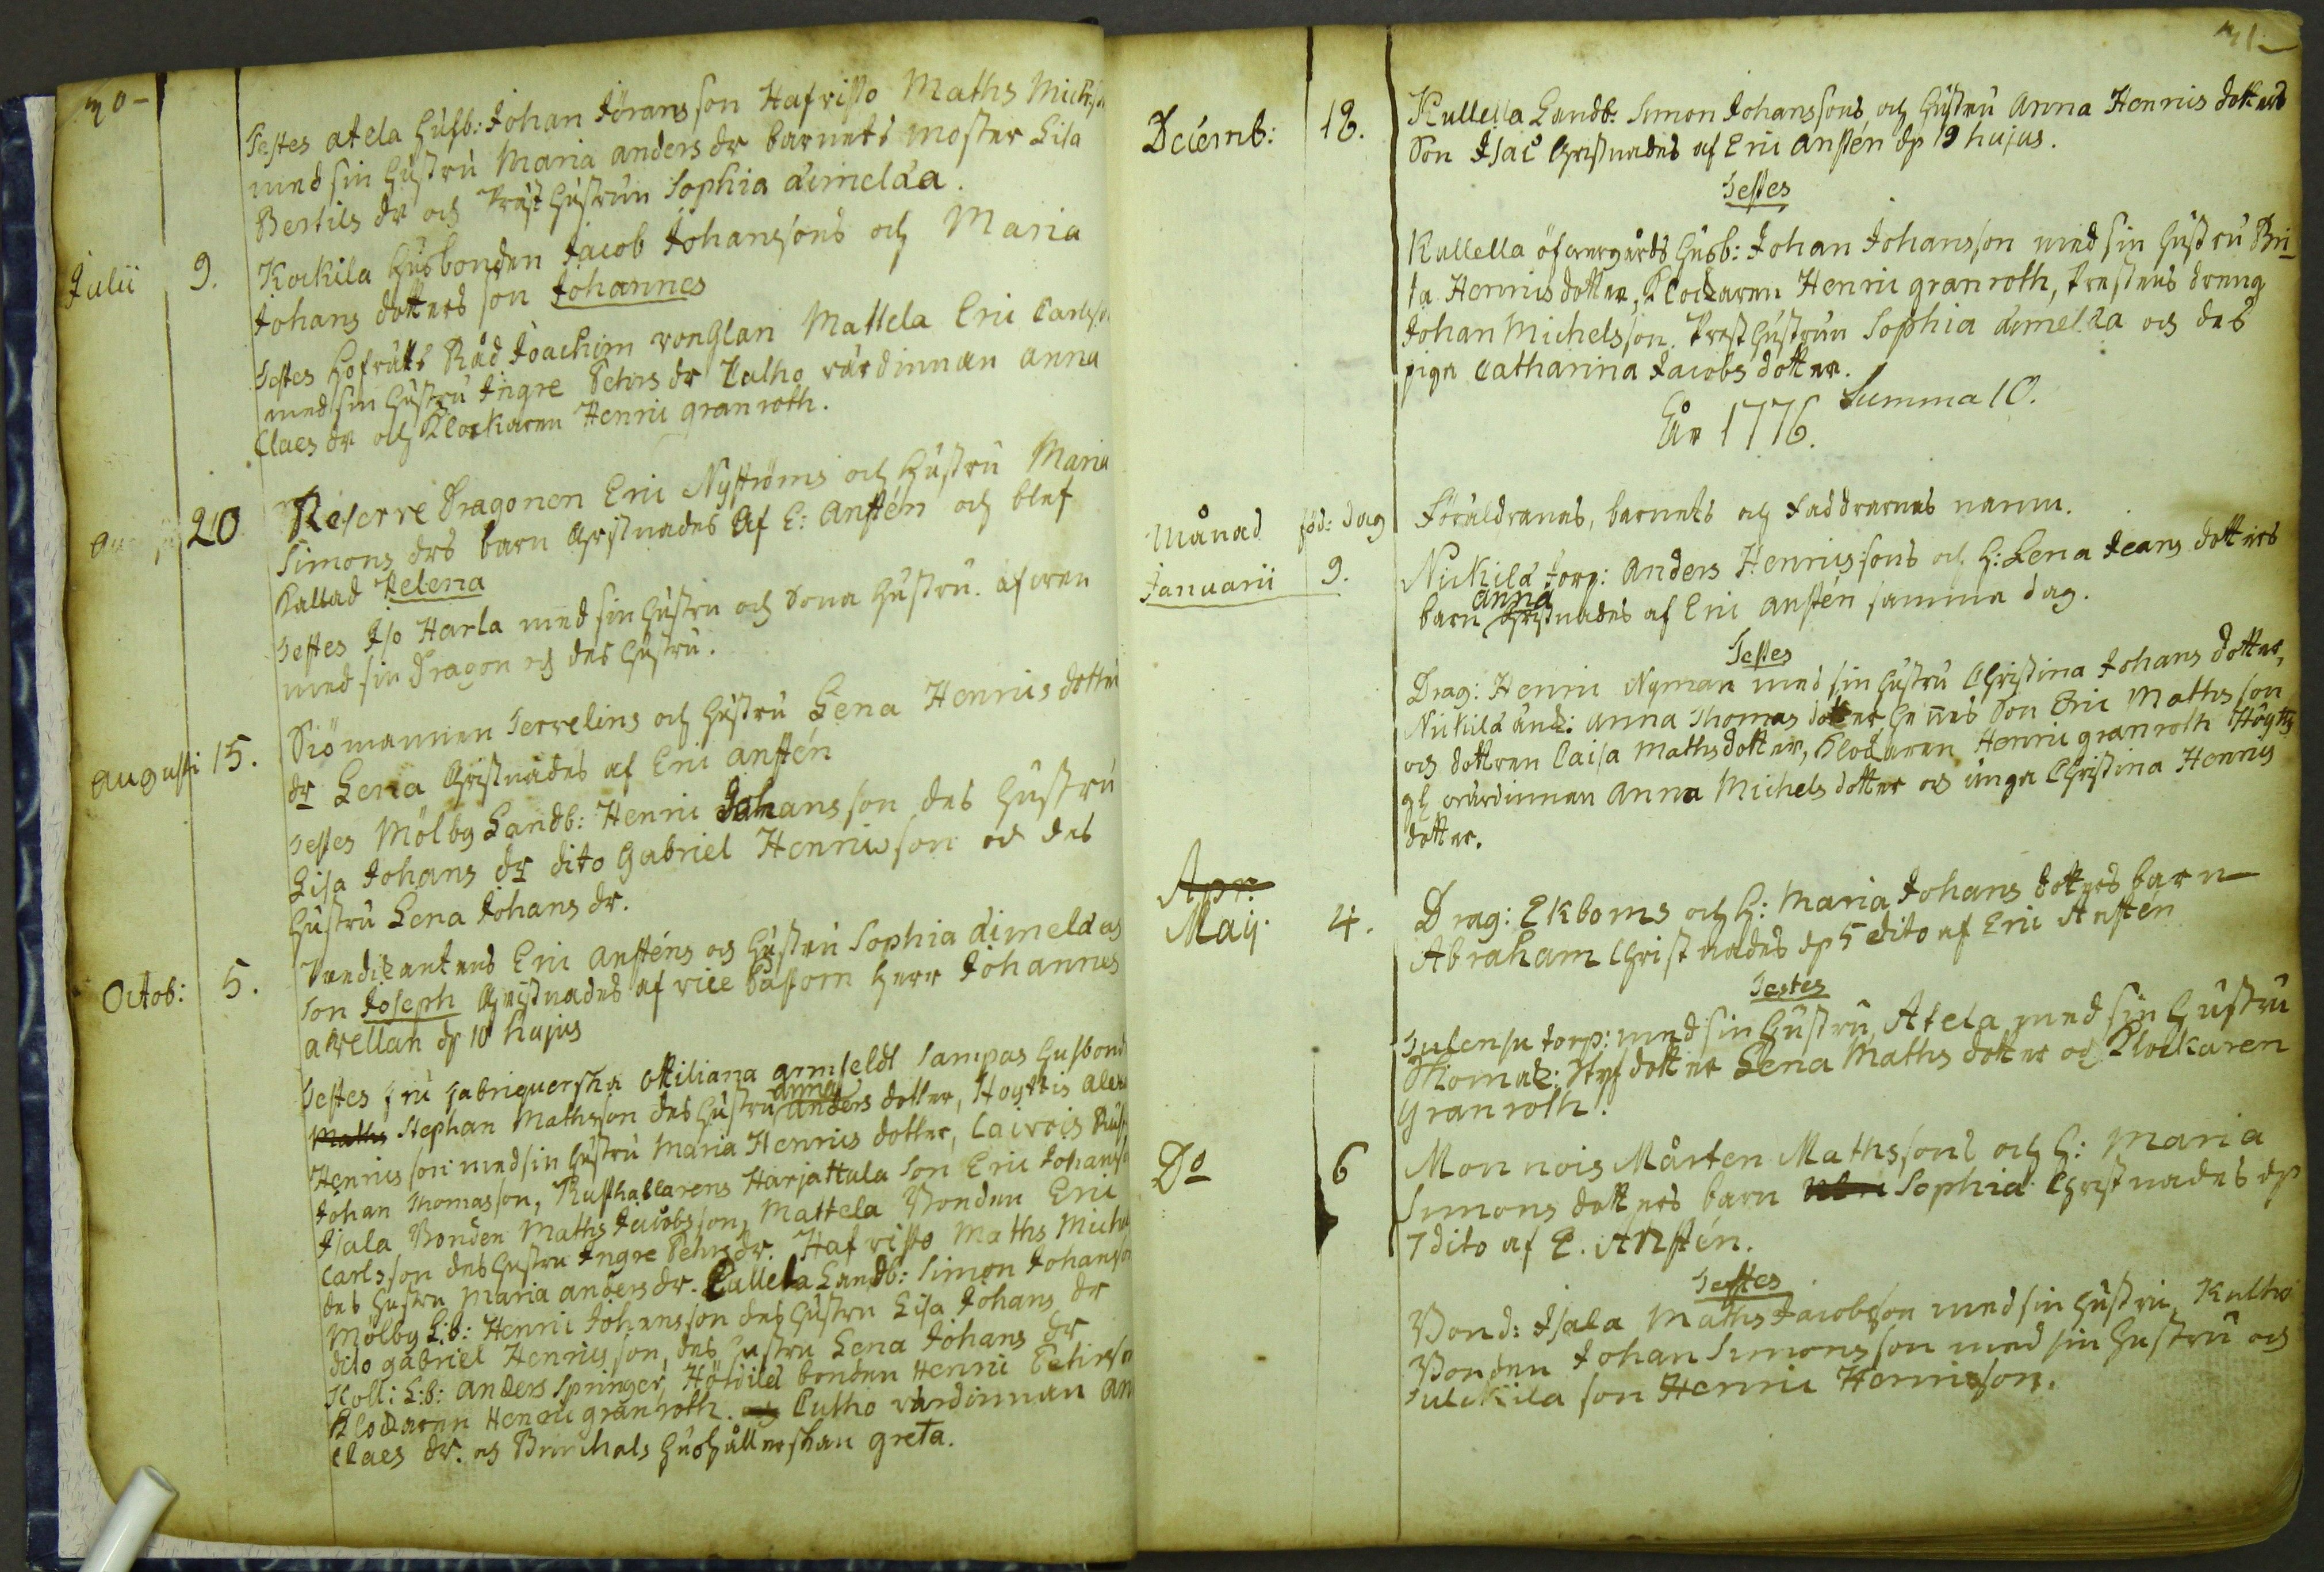 30-
Testes atela Husb: Johan Jörans son Hafvisto Maths Michs
med sin Hustru Maria anders dr barnets moster Lisa
Bertils dr och Prest Hustrun Sophia aimelæa.
Julii 9. Kockila Husbonden Jacob Johanssons och Maria
Johans dotters son Johannes
Testes Hofrätts Råd Joachim von Glan Mattela Eric Carlsson
med sin Hustru Ingre Pehrs dr Calho värdinnan anna
Claes dr och Klockaren Henric granroth.
20 Reserve Dragonen Eric Nyströms och Hustru Maria
Simons drs barn Christnades af E: Anstén och blef
Kallad Helena
Testes Iso Harla med sin Hustru och Sona Hustru.
med sin Dragon och des Hustru.
augusti 15. Siömannen Serrelins och Hustru Lena Henrics dotter
dr Lena Christnades af Eric anstén
Testes Mölby Landb: Henric Johansson des Hustru
Lisa Johans dr dito Gabriel Henricsson och des
Hustru Lena Johans dr.
Octob: 5. Predicantens Eric Ansténs och Hustru Sophia aimelæas
son Joseph Christnades af vice Pastorn Herr Johannes
avellan dp 10 hujus
Testes fru ottiliana armfeldt Sampas Husbond
Maths Stephan Mathsson des Hustru anna anders dotter, Höyttis
Henricsson med sin Hustru Maria Henrics dotter, Lairois
Johan Thomasson, Rusthallarens Harjattula Son Eric Johans
Isala Bonden Maths Jacobsson, Mattela Bonden Eric
Carlsson des Hustru Ingre Pehrs dr. Hafvisto Maths Miche
des Hustru Maria anders dr. Cullela Landb: Simon Johans
Mölby L:b: Henric Johansson des Hustru Lisa Johans dr
dito gabriel Henricsson, des Hustru Lena Johans dr
Koll: L:b: anders Springer, bonden Henric Pehrs
Klockaren Henric granroth. och Cutho värdinnan an
Claes dr. och Hushållerskan greta.
31
Decemb: 18. Kullella Landb: Simon Johanssons och Hustru Anna Henrics dotters
Son Isac Christnades af Eric ansten dp 19 hujus.
Testes
Kullella öfvergårds Husb: Johan Johansson med sin Hustru Bri-
ta Henrics dotter, Klockaren Henric granroth, Prestens dreng
Johan Michelsson. Prest Hustrun Sophia aimelæa och des
piga Catharina Jacobs dotter.
Summa 10.
År 1776.
Månad föd: dag Föräldrarnas, barnets och Faddrarnas namn.
Januarii 9. Nickilä torp: Anders Henricssons och H: Lena Jeans dotters
barn anna Christnades af Eric anstén samma dag.
Testes
Drag: Henric Nyman med sin Hustru Christina Johans dotter,
Nickilä änk: anna Thomas dotter, Hennes Son Eric Mathsson
och dottren Caisa Maths dotter, Klockaren Henric granroth Höytis
värdinnan Anna Michels dotter och unga Christina Henrics
dotter.
Apr.
Maij. 4. Drag: Ekboms och H: Maria Johans dotters barn
Abraham Christnades dp 5 dito af Eric Ansten
Testes
torp: med sin Hustru, Atela med sin Hustru
dotter Lena Maths dotter och Klockaren
Granroth.
Do 6 Monnois Mårten Mathssons och H: Maria
Simons dotters barn Sophia Christnades dp
7 dito af E. Anstén.
Testes
Bond: Isala Maths Jacobsson med sin Hustru, Kulho
Bonden Johan Simonsson med sin Hustru och
Sulckila son Henric Henricsson.